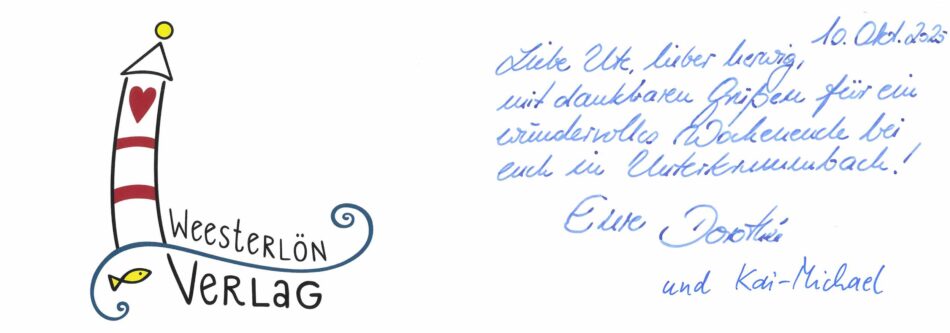 WEESTERLÖN
VERLAG
10. Okt. 2025
Liebe Ute, lieber herwig,
mit dankbaren Grüßen für ein
wundervolles Wochenende bei
euch in Unterkrumbach!
Eure Dorothée
und Kai-Michael